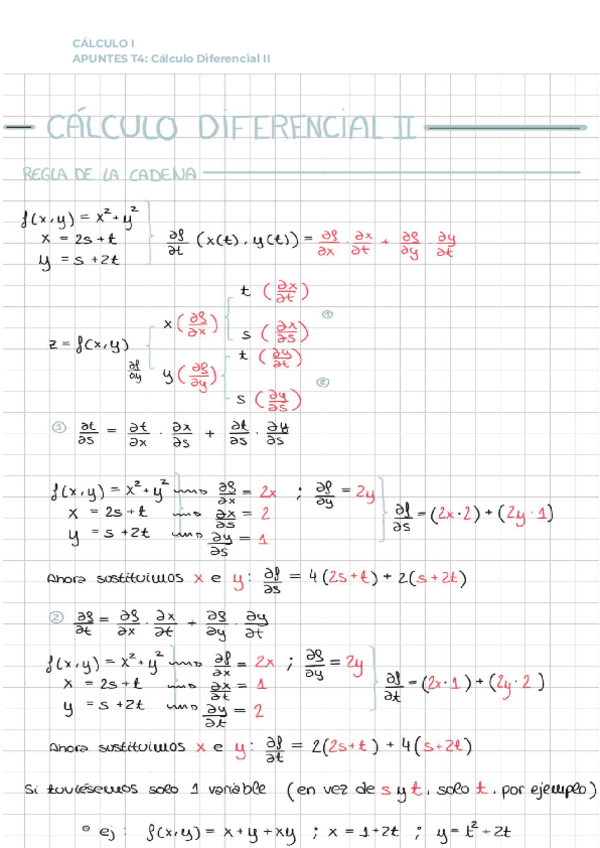 CÁLCULO I
APUNTES T4: Cálculo Diferencial II
CÁLCULO DIFERENCIAL II
REGLA DE LA CADENA
f(x,y) = x² + y²
x = 2s + t
y = s + 2t
∂f/∂t (x(t), y(t)) = ∂f/∂x · ∂x/∂t + ∂f/∂y · ∂y/∂t
t (∂x/∂t)
x (∂f/∂x)
s (∂x/∂s) ①
z = f(x,y)
t (∂y/∂t)
∂f/∂y y (∂f/∂y) ②
s (∂y/∂s)
① ∂t/∂s = ∂t/∂x · ∂x/∂s + ∂t/∂s · ∂y/∂s
f(x,y) = x² + y² ∂f/∂x = 2x ; ∂f/∂y = 2y
x = 2s + t ∂x/∂s = 2
y = s + 2t ∂y/∂s = 1
∂f/∂s = (2x · 2) + (2y · 1)
Ahora sustituimos x e y: ∂f/∂s = 4(2s+t) + 2(s+2t)
② ∂f/∂t = ∂f/∂x · ∂x/∂t + ∂f/∂y · ∂y/∂t
f(x,y) = x² + y² ∂f/∂x = 2x ; ∂f/∂y = 2y
x = 2s + t ∂x/∂t = 1
y = s + 2t ∂y/∂t = 2
∂f/∂t = (2x · 1) + (2y · 2)
Ahora sustituimos x e y: ∂f/∂t = 2(2s+t) + 4(s+2t)
Si tuviésemos solo 1 variable (en vez de s y t, solo t, por ejemplo)
• ej: f(x,y) = x + y + xy ; x = 1 + 2t ; y = t² + 2t